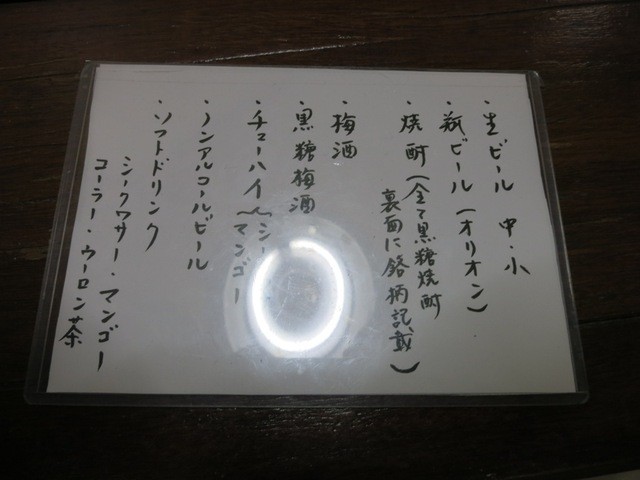 ・生ビール 中・小
・瓶ビール(オリオン)
・焼酎(全て黒糖焼酎
裏面に銘柄記載)
・梅酒
・黒糖梅酒
・チューハイ
マンゴー
・ノンアルコールビール
・ソフトドリンク
シークワサー・マンゴー
コーラー・ウーロン茶